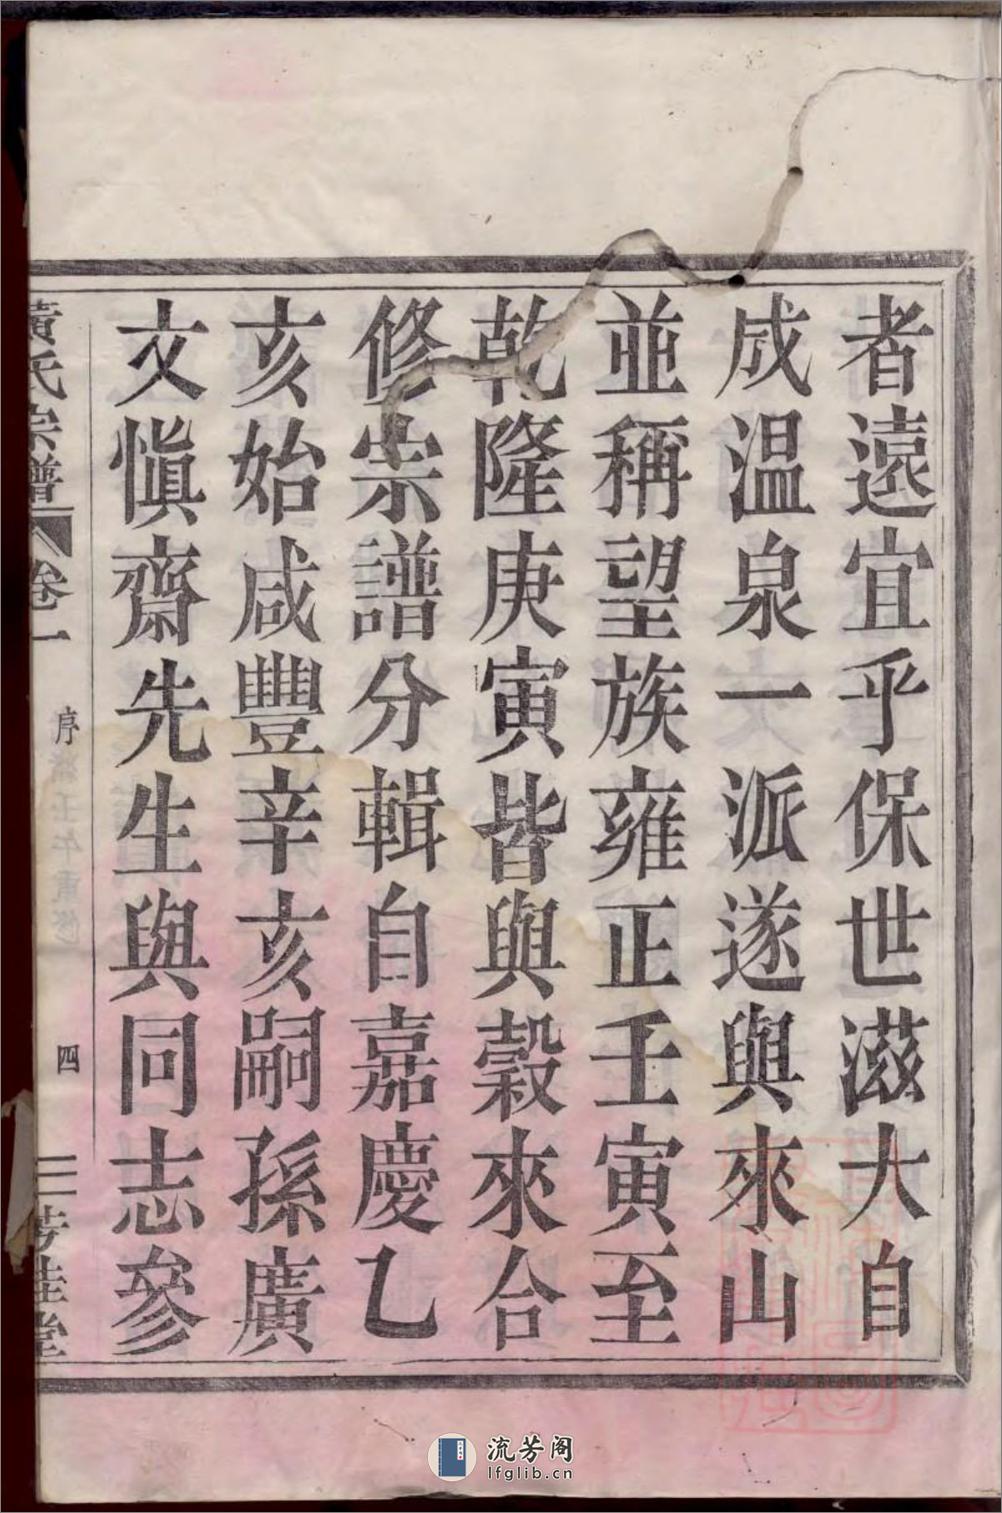 者遠宜乎保世滋大自
成温泉一派遂與來山
並稱望族雍正壬寅至
乾隆庚寅皆與穀來合
修宗譜分輯自嘉慶乙
亥始咸豐辛亥嗣孫廣
文慎齋先生與同志參
黃氏宗譜 卷一 序 四 芳桂堂
流芳阁
lfglib.cn